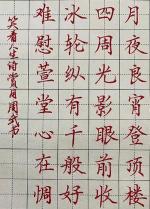 月夜良宵登顶楼
四周光影眼前收
冰轮纵有千般好
难慰萱堂心在惆
笑看人生诗赏月周武书